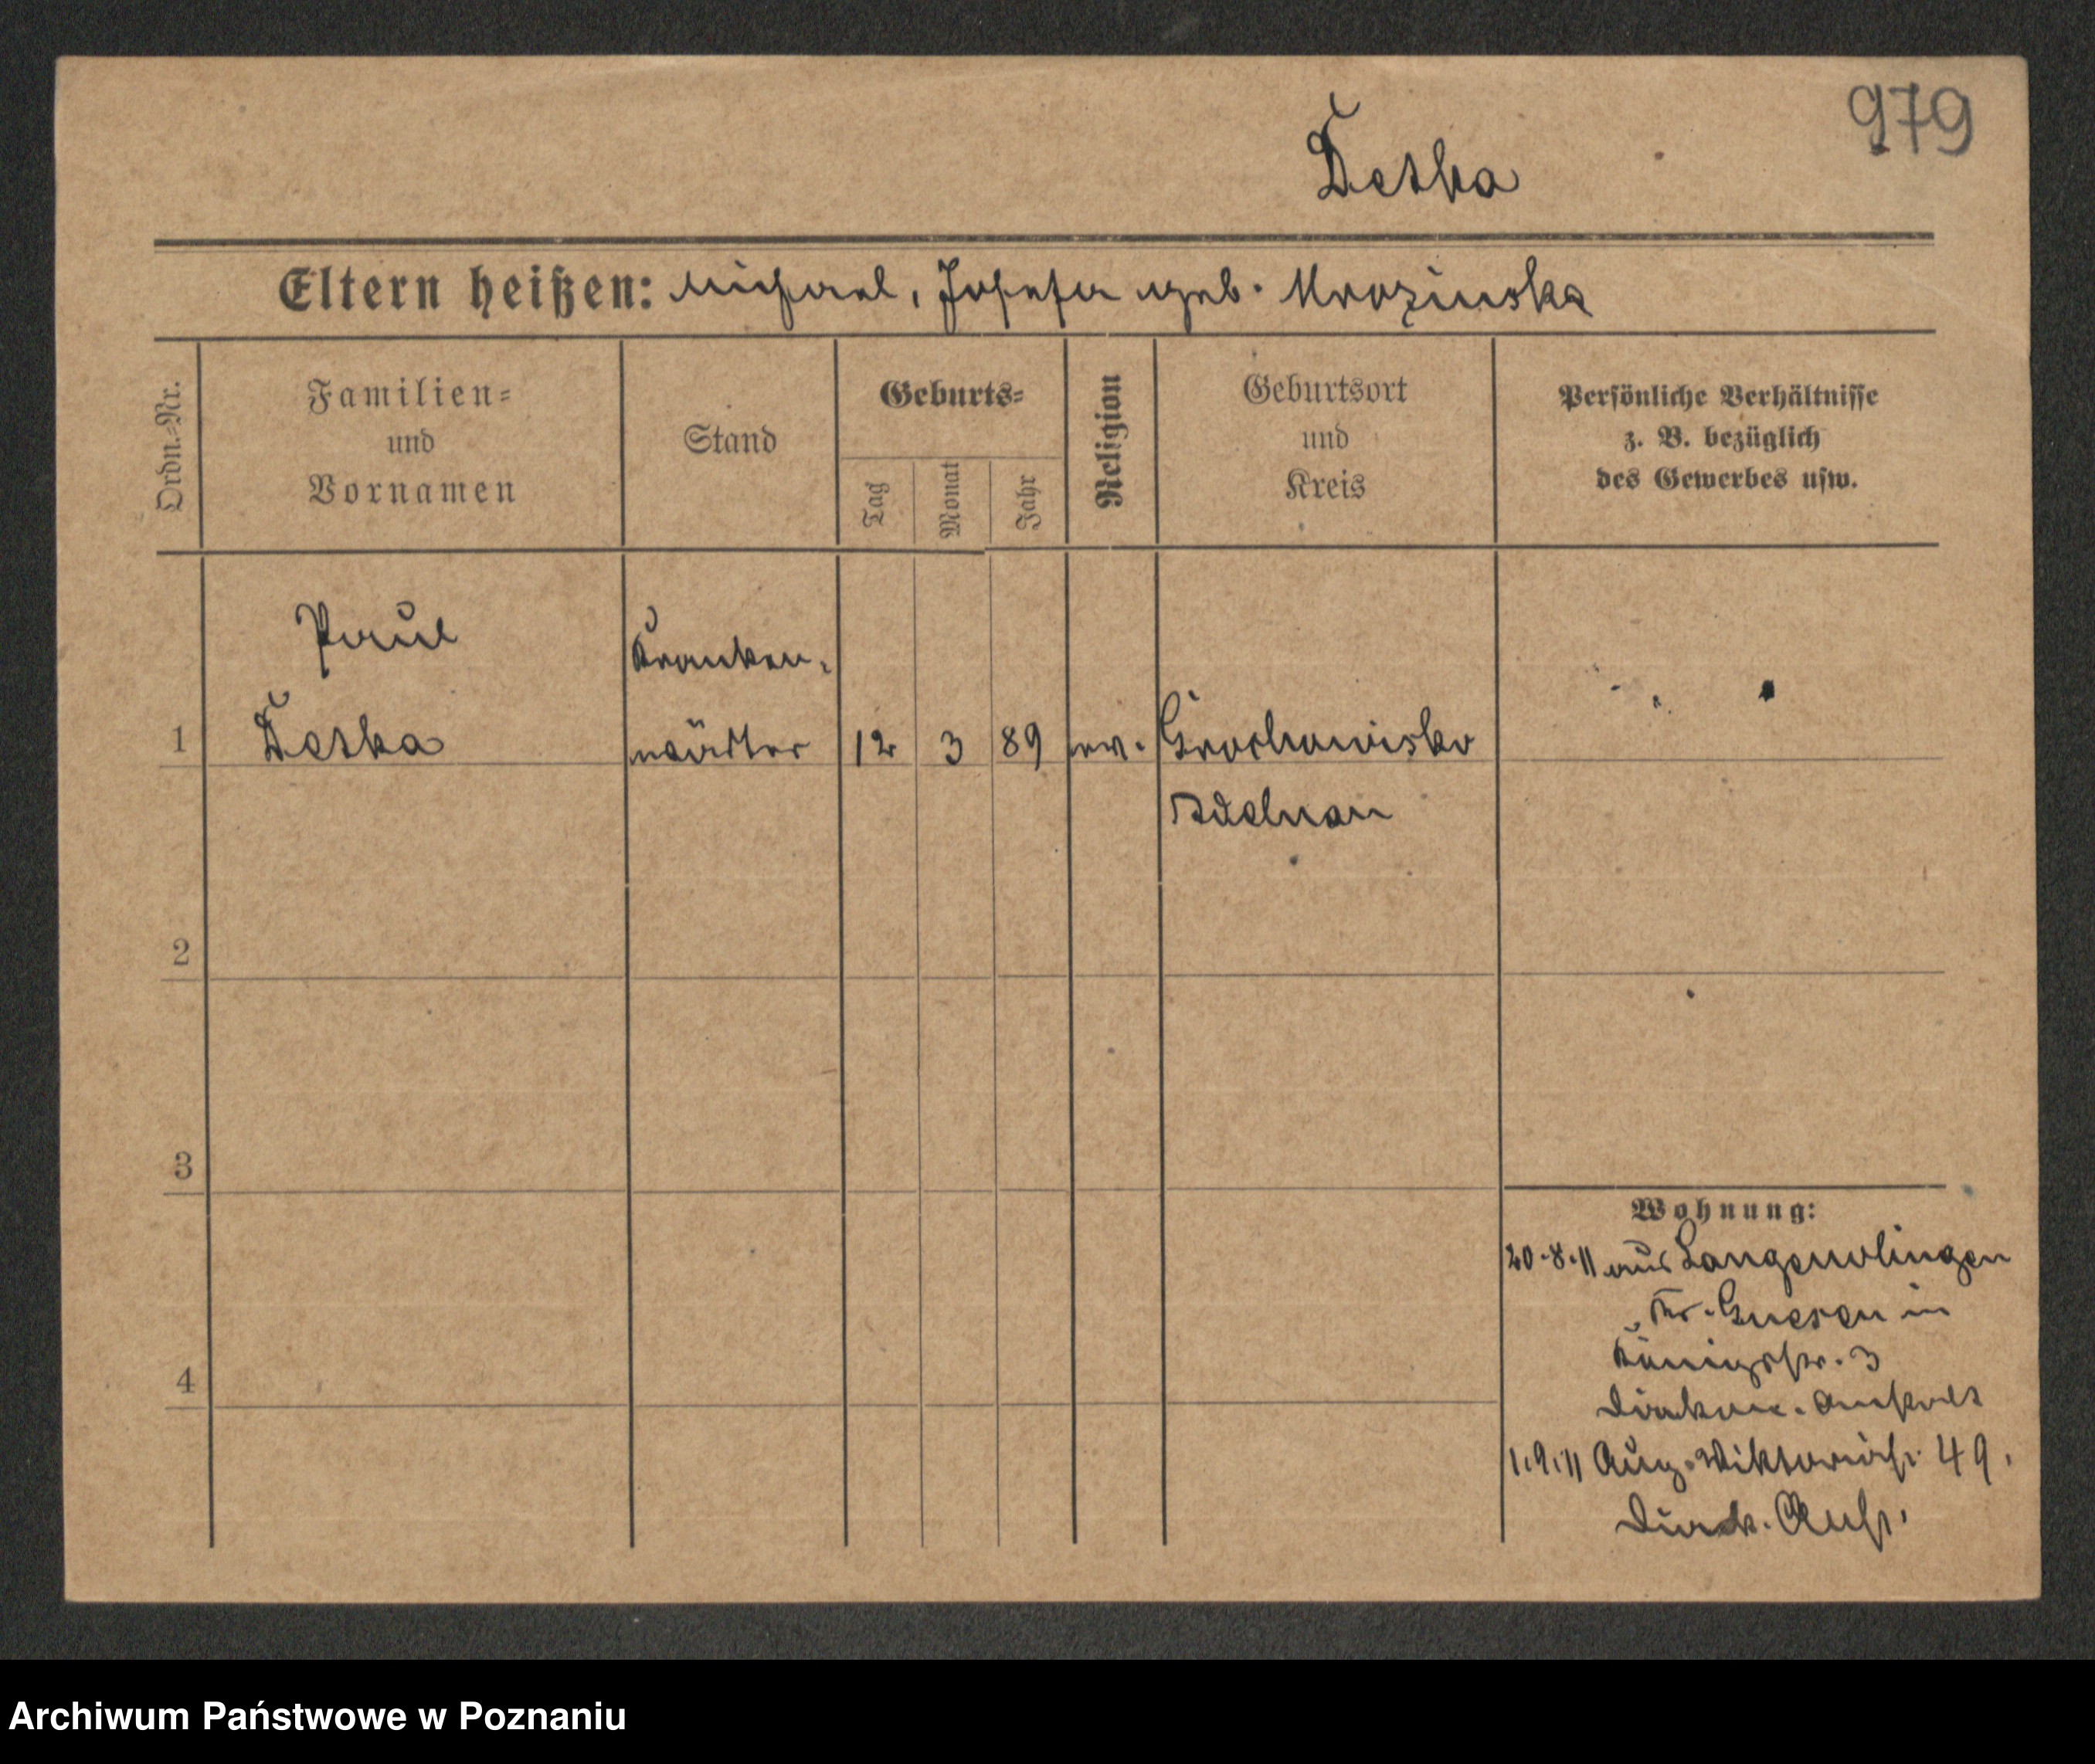 979
Deska
Eltern heißen: Michael, Josefa geb. Mrozinska
Ordn.=Nr.
Familien=
und
Vornamen
Stand
Geburts=
Tag
Monat
Jahr
Religion
Geburtsort
und
Kreis
Persönliche Verhältnisse
z. B. bezüglich
des Gewerbes usw.
Paul
Kranken-
1 Deska wärter 12 3 89 ev. Grochowisko
Adelnau
2
3
4
Wohnung:
20.8.11 aus Langenolingen
Kr. Gnesen in
Königstr. 3
Diakon. Anstalt
1.9.11 Aug. Viktoriastr. 49.
Diak. Anst.
Archiwum Państwowe w Poznaniu